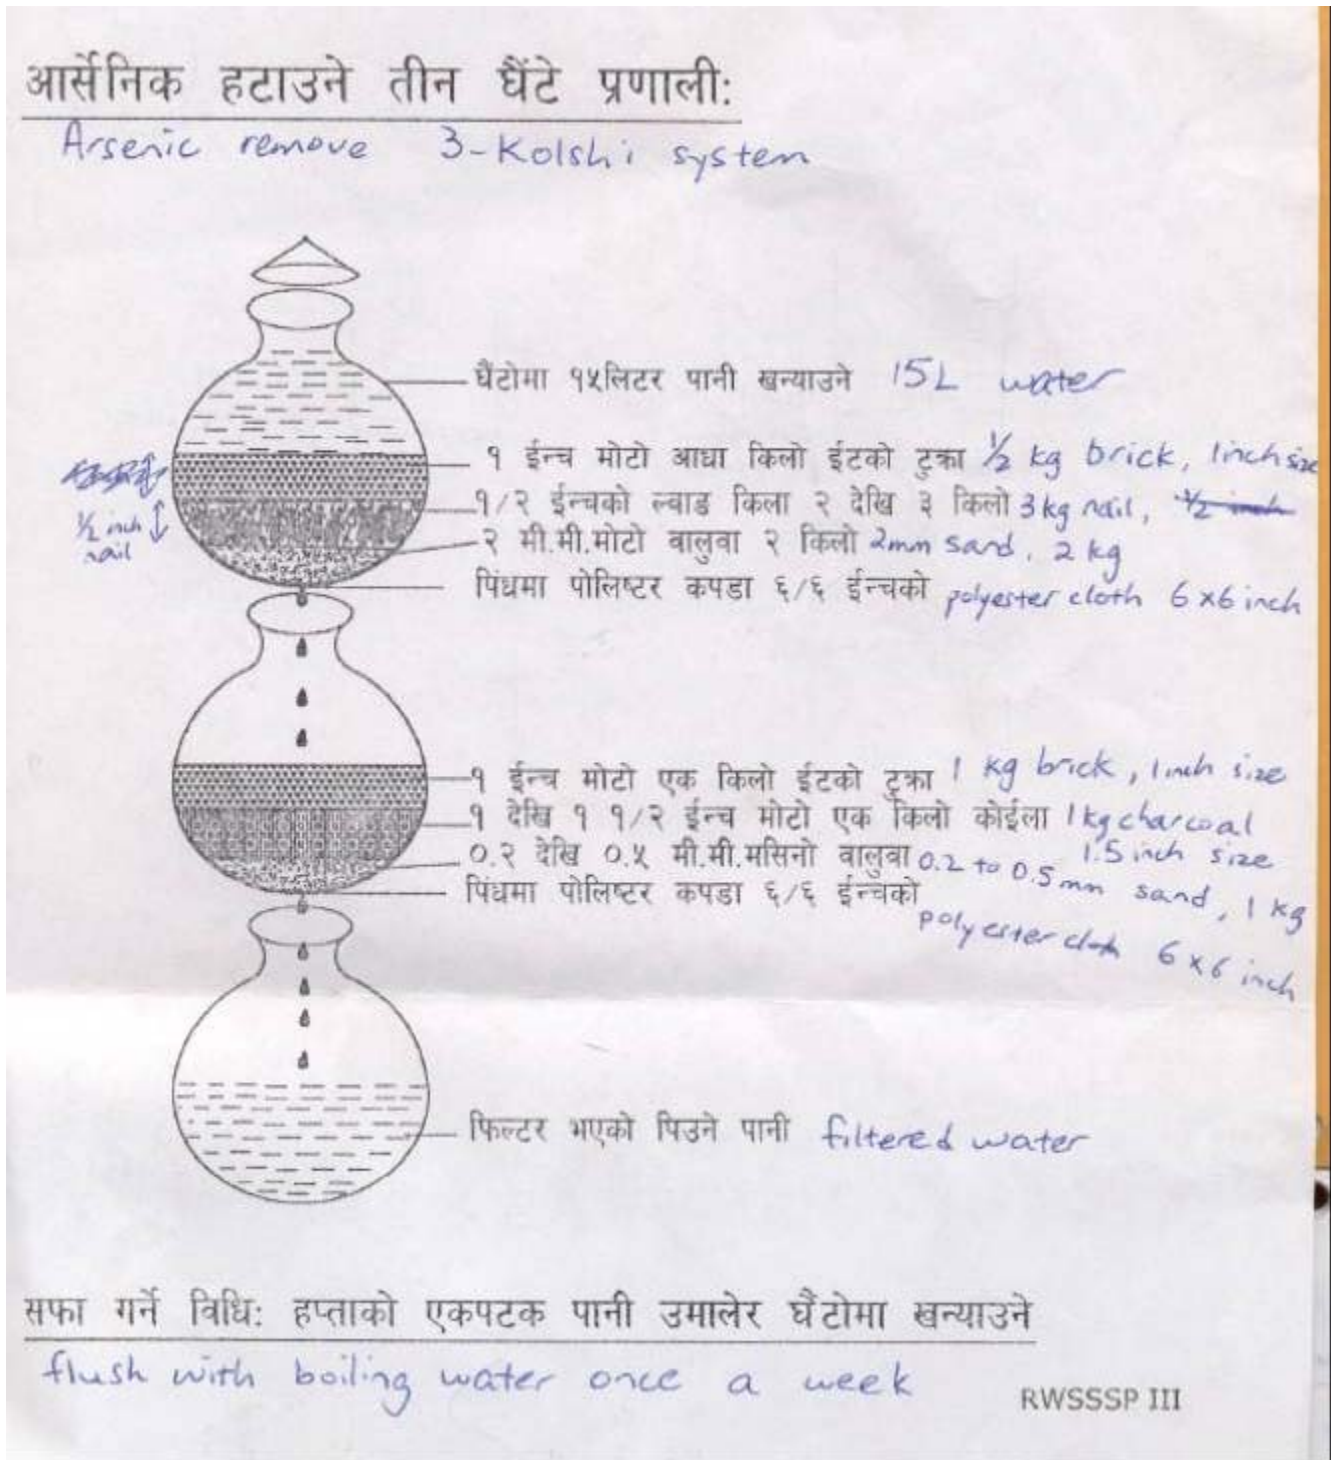 आर्सेनिक हटाउने तीन घैंटे प्रणाली:
Arsenic remove 3-Kolshi system
घैंटोमा १५लिटर पानी खन्याउने 15L water
१ ईन्च मोटो आधा किलो ईटको टुक्रा 1/2 kg brick, 1inch size
१/२ ईन्चको ल्वाड किला २ देखि ३ किलो 3kg nail, 1/2 inch
1/2 inch
nail
२ मी.मी.मोटो वालुवा २ किलो 2mm sand, 2 kg
पिंधमा पोलिष्टर कपडा ६/६ ईन्चको polyester cloth 6x6 inch
१ ईन्च मोटो एक किलो ईटको टुक्रा 1 kg brick, 1inch size
१ देखि १ १/२ ईन्च मोटो एक किलो कोईला 1kg charcoal
1.5 inch size
०.२ देखि ०.५ मी.मी.मसिनो वालुवा 0.2 to 0.5mm sand, 1 kg
पिंधमा पोलिष्टर कपडा ६/६ ईन्चको
polyester cloth 6x6 inch
फिल्टर भएको पिउने पानी filtered water
सफा गर्ने विधि: हप्ताको एकपटक पानी उमालेर घैंटोमा खन्याउने
flush with boiling water once a week
RWSSSP III